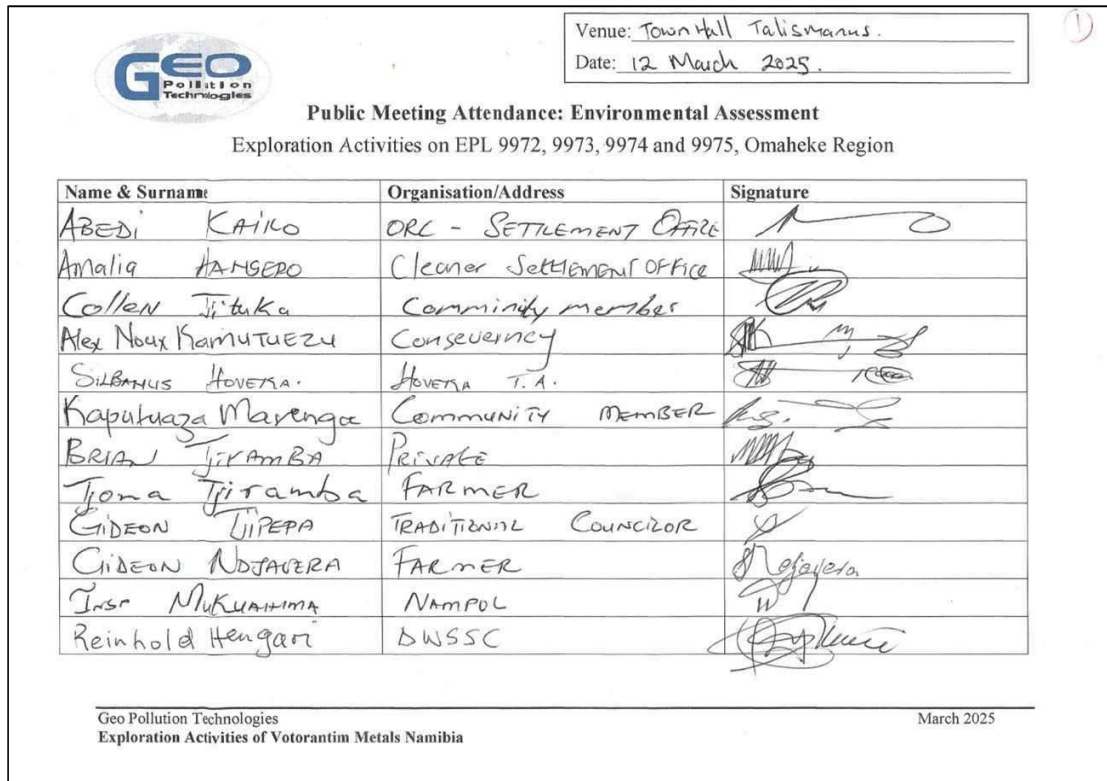 Venue: Town Hall Talismanus.
1
Date: 12 March 2025.
GEO
Pollution
Technologies
Public Meeting Attendance: Environmental Assessment
Exploration Activities on EPL 9972, 9973, 9974 and 9975, Omaheke Region
Name & Surname Organisation/Address Signature
ABEDi KAiKO ORC - SETTLEMENT OFFICE
Amalia HANGERO Cleaner SettLEMENT OFFICE
Collen Tjituka Comminity member
Alex Noux KAMUTUEZU Conseverncy
SILBANUS HOVEKA. HOVEKA T.A.
Kaputuaza Marenga COMMUNITY MEMBER
BRIAN TJIRAMBA PRIVATE
Tjoma Tjiramba FARMER
GIDEON TJIPEPA TRADITIONAL COUNCILOR
GIDEON NDJAVERA FARMER Ndjavera
Insp MUKUAHIMA NAMPOL
Reinhold Hengari DWSSC
Geo Pollution Technologies March 2025
Exploration Activities of Votorantim Metals Namibia